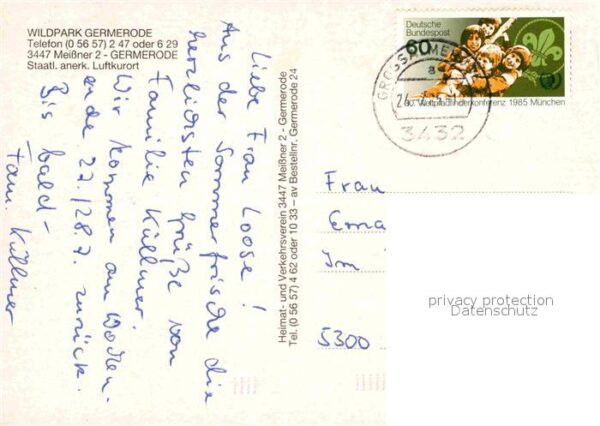 WILDPARK GERMERODE
Telefon (0 56 57) 2 47 oder 6 29
3447 Meißner 2 - GERMERODE
Staatl. anerk. Luftkurort
Liebe Frau Loose!
Aus der Sommerfrische die
herzlichsten Grüße von
Familie Küllmer.
Wir kommen am Wochen-
ende 27./28.7. zurück.
Bis bald -
Fam. Küllmer
Heimat- und Verkehrsverein 3447 Meißner 2 - Germerode
Tel. (0 56 57) 4 62 oder 10 33 – av Bestellnr. Germerode 24
Deutsche
Bundespost
60
30. Weltpfadfinderkonferenz 1985 München
GROSSALME
a
3432
Frau
Erna
Im
5300
privacy protection
Datenschutz